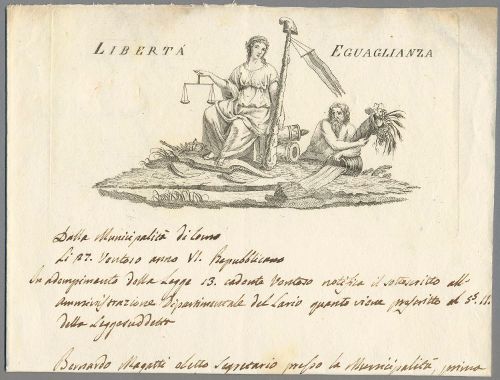 LIBERTÁ EGUAGLIANZA
Dalla Municipalità di Como
Li 27. Ventoso anno VI. Repubblicano
In adempimento della Legge 13. cadente Ventoso notifica il sottoscritto all'
Amministrazione Dipartimentale del Lario quanto viene prescritto al §. 11.
della Legge suddetta
Bernardo Magatti eletto Segretario presso la Municipalità, prima